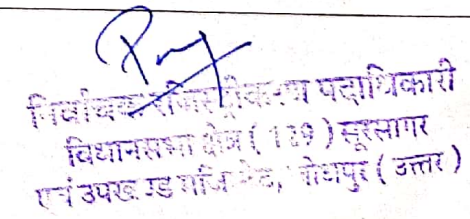 निर्वाचक रजिस्ट्रीकरण पदाधिकारी
विधानसभा क्षेत्र ( 129 ) सूरसागर
एवं उपखण्ड मजिस्ट्रेट, जोधपुर ( उत्तर )